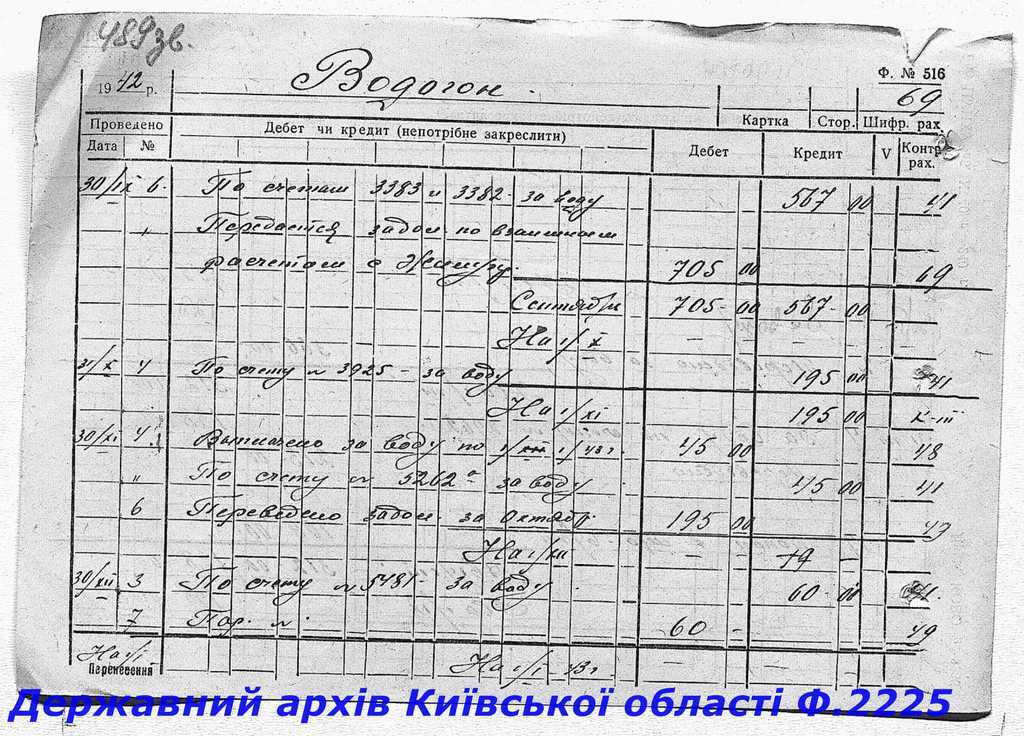 489 зв.
Ф. № 516
1942 р. Водогон. 69
Картка Стор. Шифр. рах.
Проведено Дебет чи кредит (непотрібне закреслити) Дебет Кредит V Контр. рах.
Дата №
30/IX 6. По счетам 3383 и 3382 - за воду 567 00 41
" Передается задол. по взаимным
расчетам с 705 00 69
Сентябрь 705-00 567-00
На 1/X — — — —
4 По счету № 3925 - за воду 195 00 41
На 1/XI 195 00 к-III
30/XI 4. за воду по 1/43 г. 45 00 48
" По счету № 5262 за воду 45 00 41
6 Переведено задол. за Октябрь 195 00
На 1/XII — —
30/XII 3 По счету № 5481 за воду 60-00 41.
7 60 - 49
На 1/I
Перенесення На 1/I 43 г. — — — —
Державний архів Київської області Ф.2225